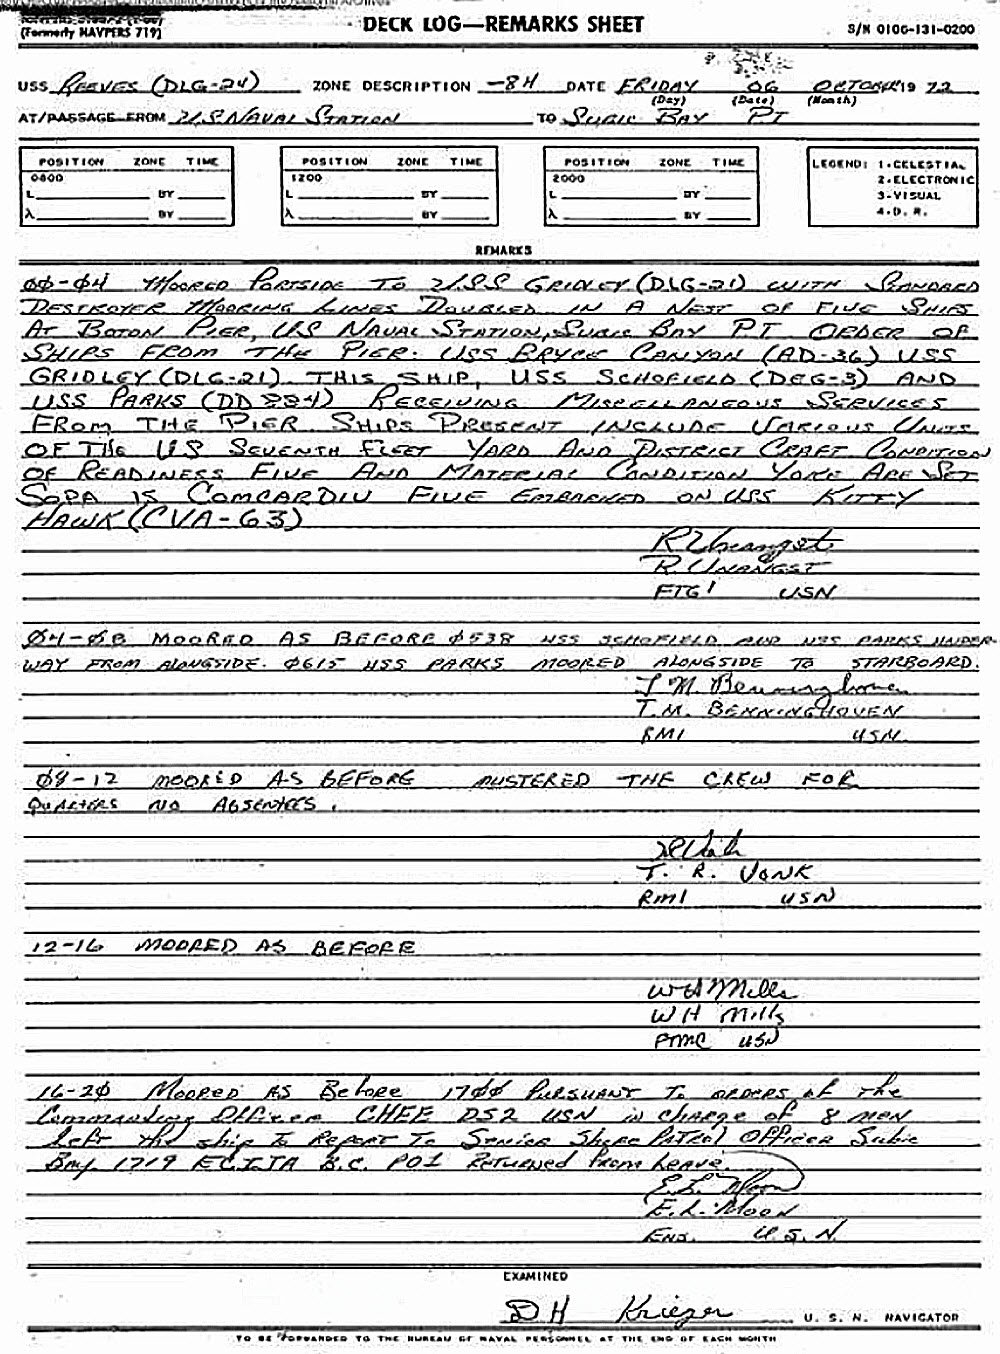 (Formerly NAVPERS 719)
DECK LOG—REMARKS SHEET
S/N 0106-131-0200
USS REEVES (DLG-24) ZONE DESCRIPTION -8H DATE FRIDAY 06 OCTOBER 19 72
(Day) (Date) (Month)
AT/PASSAGE FROM U.S. NAVAL STATION TO SUBIC BAY PI
POSITION ZONE TIME POSITION ZONE TIME POSITION ZONE TIME LEGEND: 1-CELESTIAL
0800 1200 2000 2-ELECTRONIC
L BY L BY L BY 3-VISUAL
λ BY λ BY λ BY 4-D. R.
REMARKS
ØØ-Ø4 MOORED PORTSIDE TO USS GRIDLEY (DLG-21) WITH STANDARD
DESTROYER MOORING LINES DOUBLED IN A NEST OF FIVE SHIPS
AT BOTON PIER, US NAVAL STATION, SUBIC BAY PI ORDER OF
SHIPS FROM THE PIER. USS BRYCE CANYON (AD-36) USS
GRIDLEY (DLG-21) THIS SHIP, USS SCHOFIELD (DEG-3) AND
USS PARKS (DD 884) RECEIVING MISCELLANEOUS SERVICES
FROM THE PIER. SHIPS PRESENT INCLUDE VARIOUS UNITS
OF THE US SEVENTH FLEET YARD AND DISTRICT CRAFT CONDITION
OF READINESS FIVE AND MATERIAL CONDITION YOKE ARE SET
SOPA IS COMCARDIV FIVE EMBARKED ON USS KITTY
HAWK (CVA-63)
R Unangst
R. UNANGST
FTG1 USN
Ø4-Ø8 MOORED AS BEFORE Ø538 USS SCHOFIELD AND USS PARKS UNDER-
WAY FROM ALONGSIDE. Ø615 USS PARKS MOORED ALONGSIDE TO STARBOARD.
T M. Benninghoven
T.M. BENNINGHOVEN
RM1 USN
Ø8-12 MOORED AS BEFORE MUSTERED THE CREW FOR
QUARTERS NO ABSENTEES.
T. R. VONK
RM1 USN
12-16 MOORED AS BEFORE
W H Mills
W H Mills
USN
16-2Ø MOORED AS Before 17ØØ PURSUANT TO ORDERS of the
Commanding Officer CHEE DS2 USN in charge of 8 men
Left the ship To Report To Senior Shore PATROL OFFICER Subic
Bay 1719 ECITA B.C. PO1 Returned From Leave.
E.L. Moon
E.L. MOON
ENS. U.S.N.
EXAMINED
D H Krieger U. S. N. NAVIGATOR
TO BE FORWARDED TO THE BUREAU OF NAVAL PERSONNEL AT THE END OF EACH MONTH